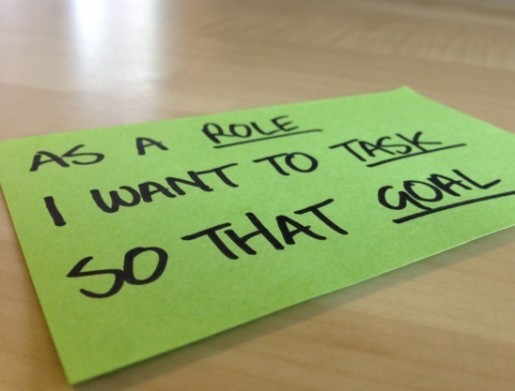 AS A ROLE
I WANT TO TASK
SO THAT GOAL